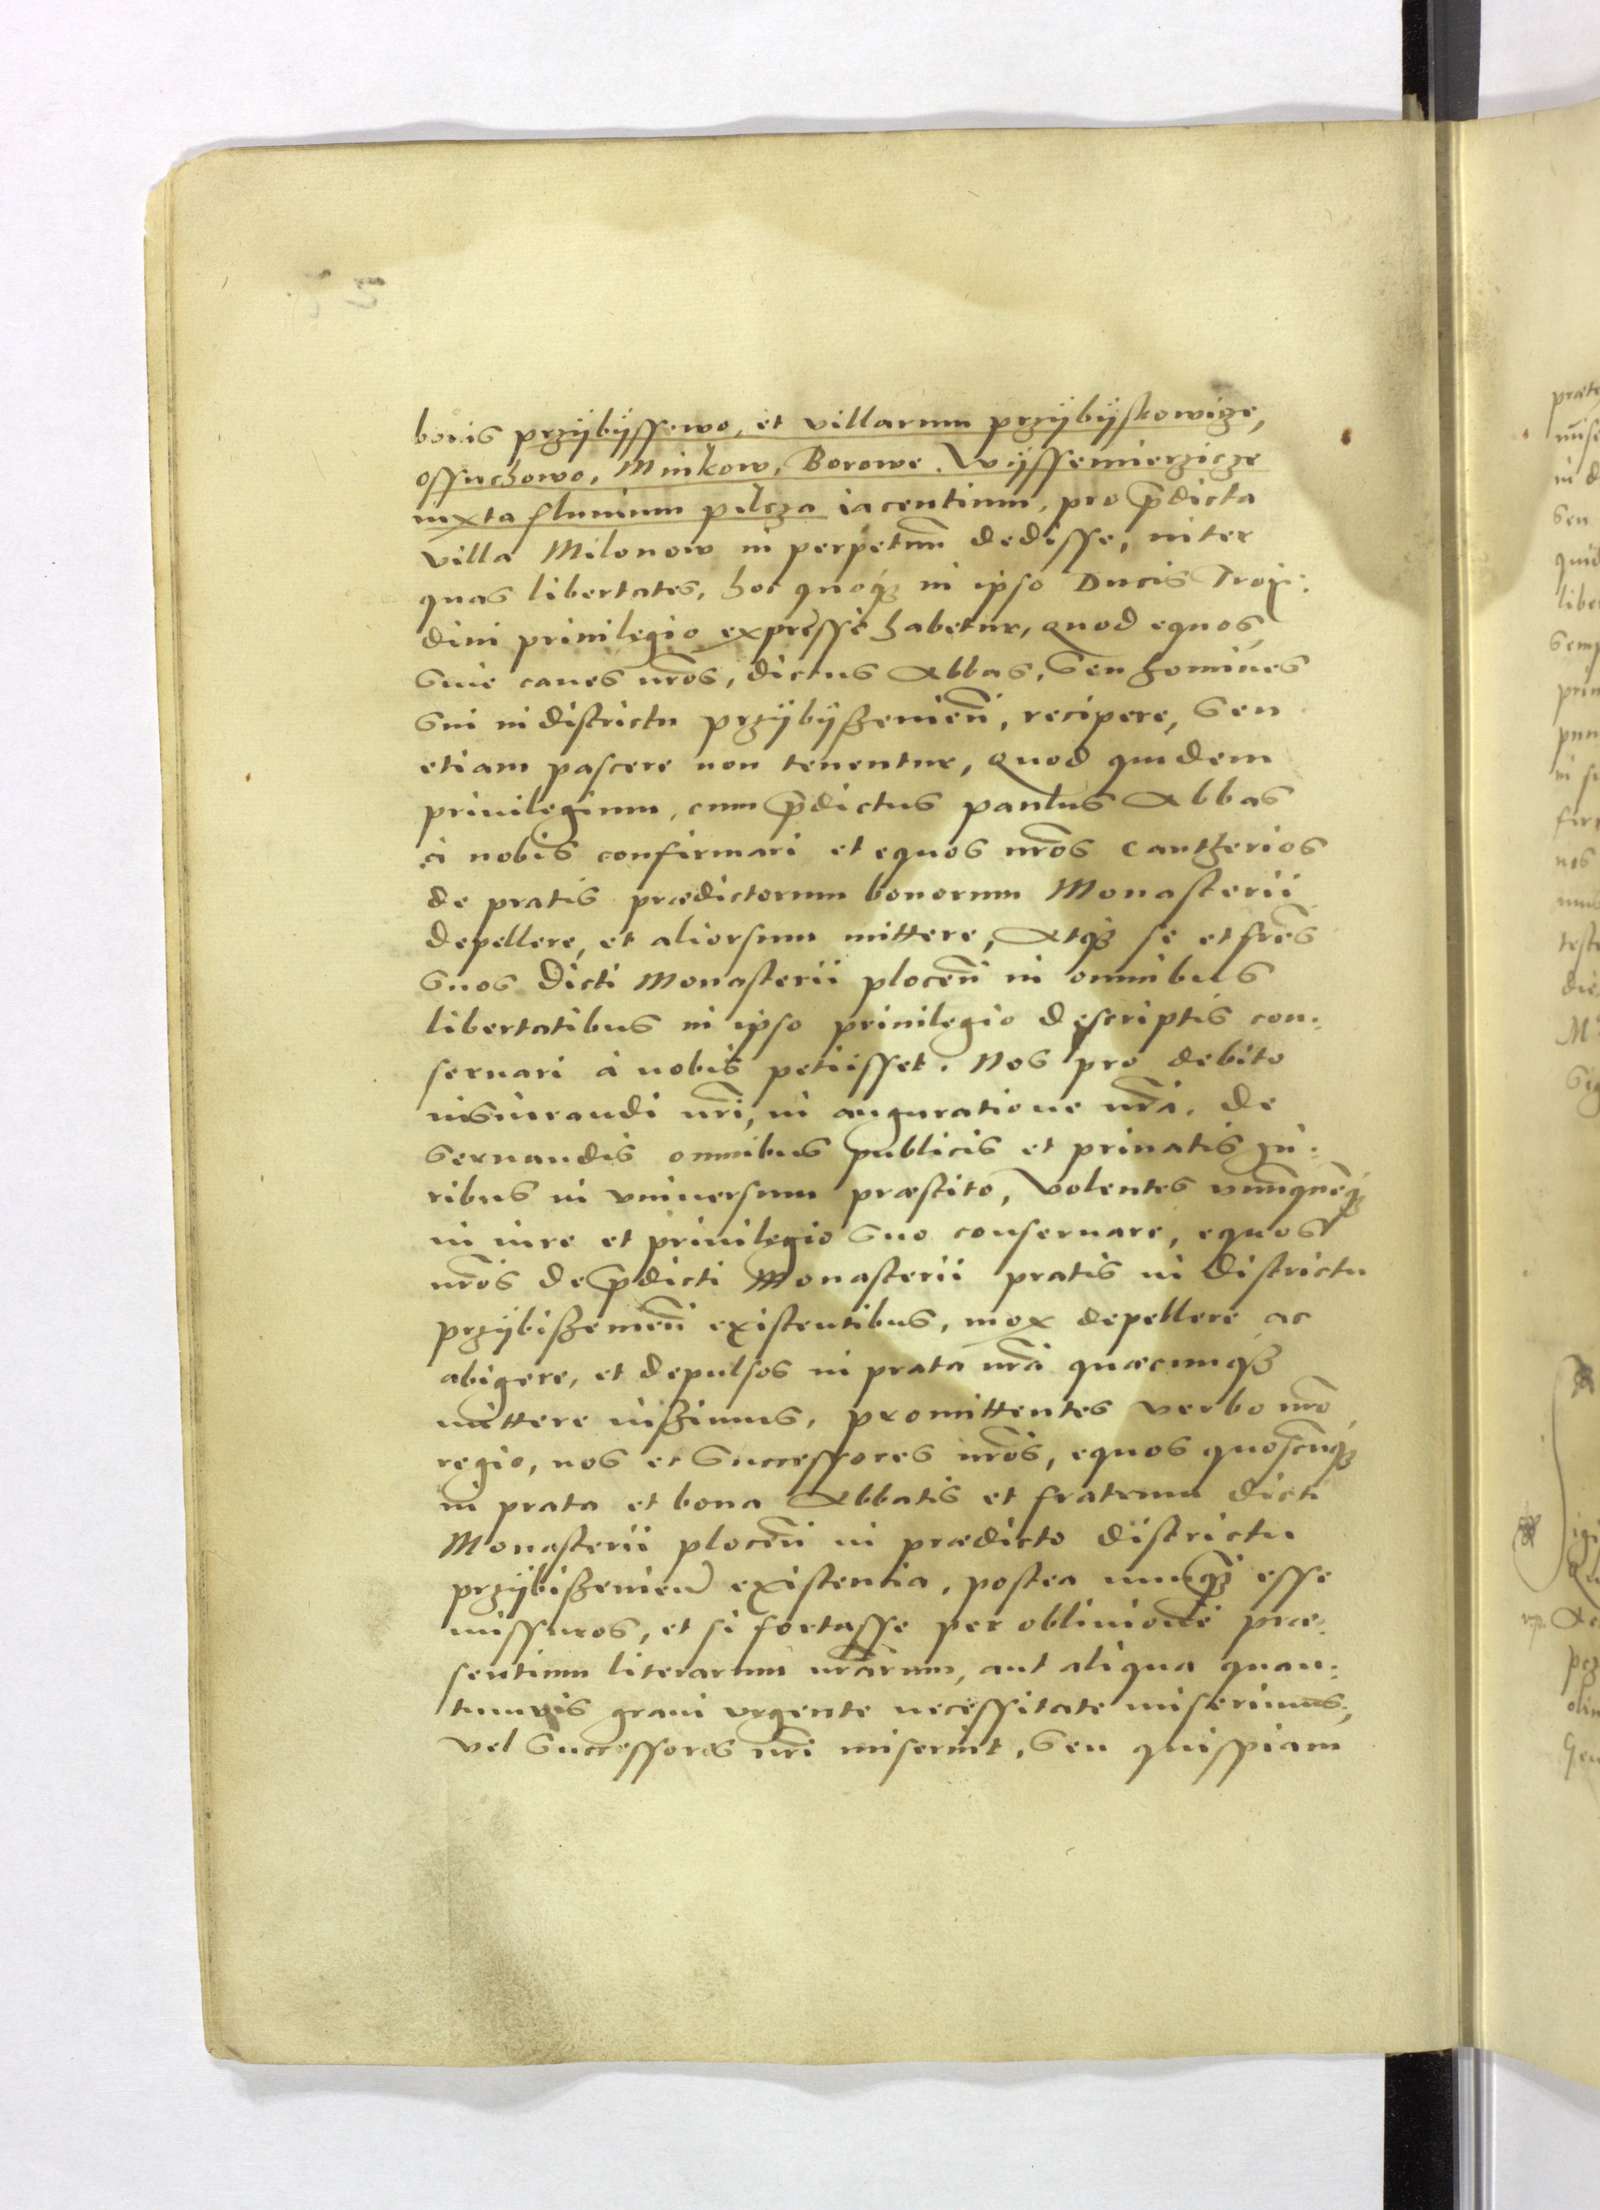 bonis przÿbÿssewo, et villarum przÿbÿskowicze,
ossuchowo, Minkow, Borowe, Wÿssemierzicze
iuxta fluuium pilcza iacentium, pro p̄dicta
villa Milonow in perpetuū dedisse, inter
quas libertates, hoc quoqȝ in ipso Ducis Troÿ:
dini priuilegio expressè habetur, Quod equos,
siue canes nr̄os, dictus Abbas, seu homines
sui in districtu przÿbÿszewieñ, recipere, seu
etiam pascere non tenentur, Quod quidem
priuilegium, cum p̄dictus paulus Abbas
à nobis confirmari et equos nr̄os cantherios
de pratis prædictorum bonorum Monasterii
depellere, et aliorsum mittere, Atqȝ se et fr̄es
suos dicti Monasterii ploceñ in omnibus
libertatibus in ipso priuilegio descriptis con:
seruari à nobis petiisset. Nos pro debito
iusiurandi nr̄i, in auguratione nr̄a, de
seruandis omnibus publicis et priuatis iu:
ribus in vniuersum præstito, Volentes vnūquēqȝ
in iure et priuilegio suo conseruare, equos
nr̄os de p̄dicti Monasterii pratis in districtu
przÿbiszewieñ existentibus, mox depellere ac
abigere, et depulsos in prata nr̄a quæcumqȝ
mittere iussimus, promittentes verbo nr̄o
regio, nos et Successores nr̄os, equos quoscūqȝ
in prata et bona Abbatis et fratrum dicti
Monasterii ploceñ in prædicto districtu
przÿbiszewieñ existentia, postea nunqȝ esse
missuros, et si fortasse per obliuionē præ:
sentium literarum nr̄arum, aut aliqua quan:
tumuis graui vrgente necessitate miserimus,
vel Successores nr̄i miserint, seu quispiam